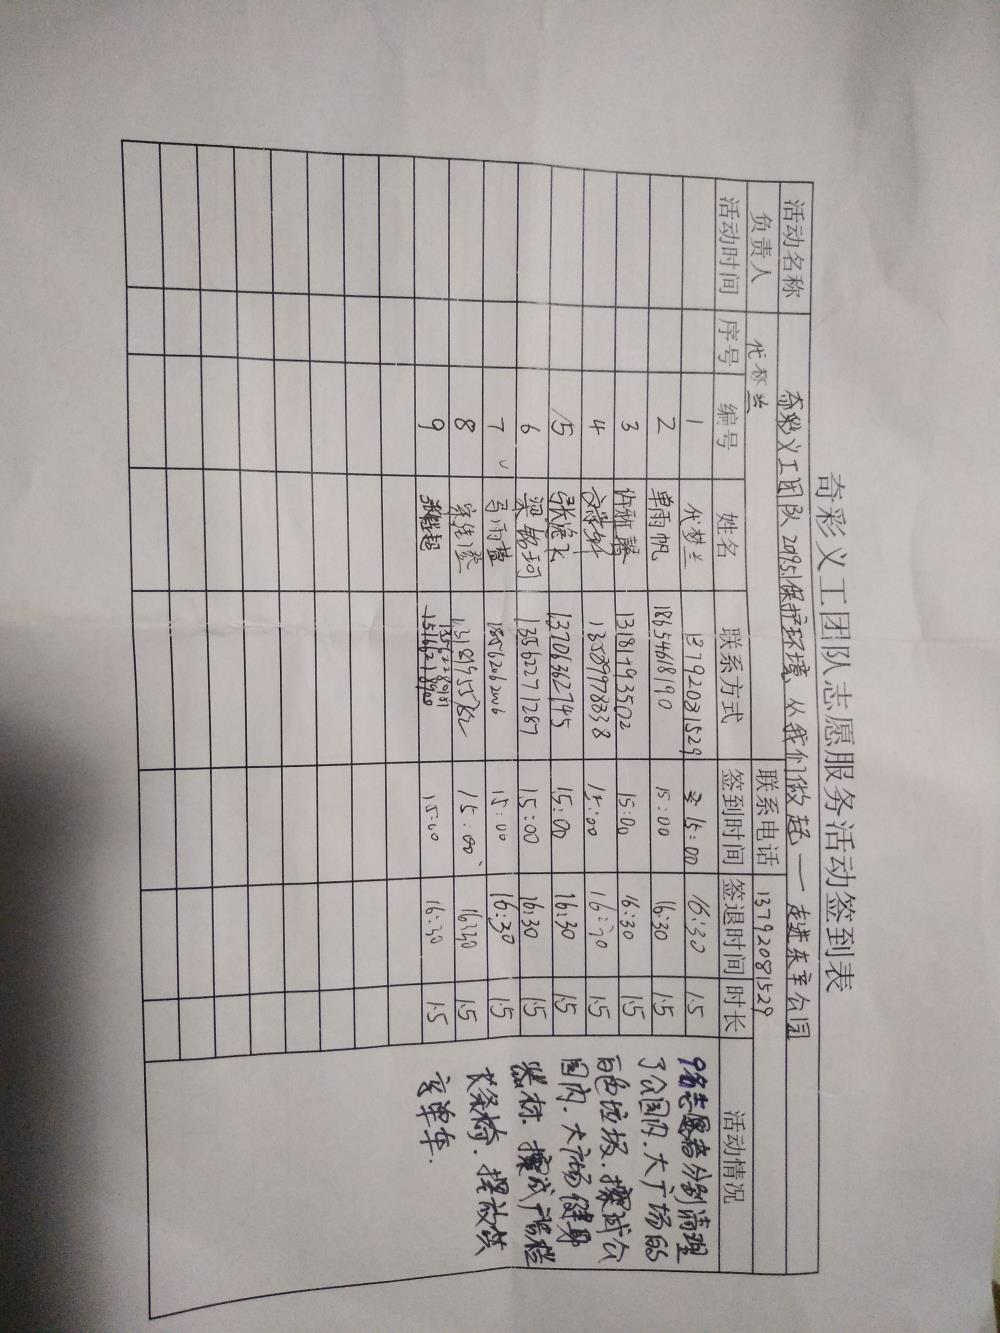 奇彩义工团队志愿服务活动签到表
活动名称 奇彩义工团队2019.5.1保护环境,从我们做起——走进东宇公园
负责人 代梦兰 联系电话 13792081529
活动时间 序号 编号 姓名 联系方式 签到时间 签退时间 时长 活动情况
1 代梦兰 13792081529 15:00 16:30 1.5
2 单雨帆 18654618190 15:00 16:30 1.5
3 许雅馨 13181993502 15:00 16:30 1.5
4 13589978838 15:00 16:30 1.5
5 张涵飞 13706362745 15:00 16:30 1.5
6 梁铭珂 13562271287 15:00 16:30 1.5
7 马雨萱 18562062006 15:00 16:30 1.5
8 宋佳 15:00 16:30 1.5
9 15:00 16:30 1.5
9名志愿者分别清理
了公园内.大广场的
白色垃圾.擦拭公
园内.大广场健身
器材.擦拭广告栏
长条椅.摆放共
享单车.